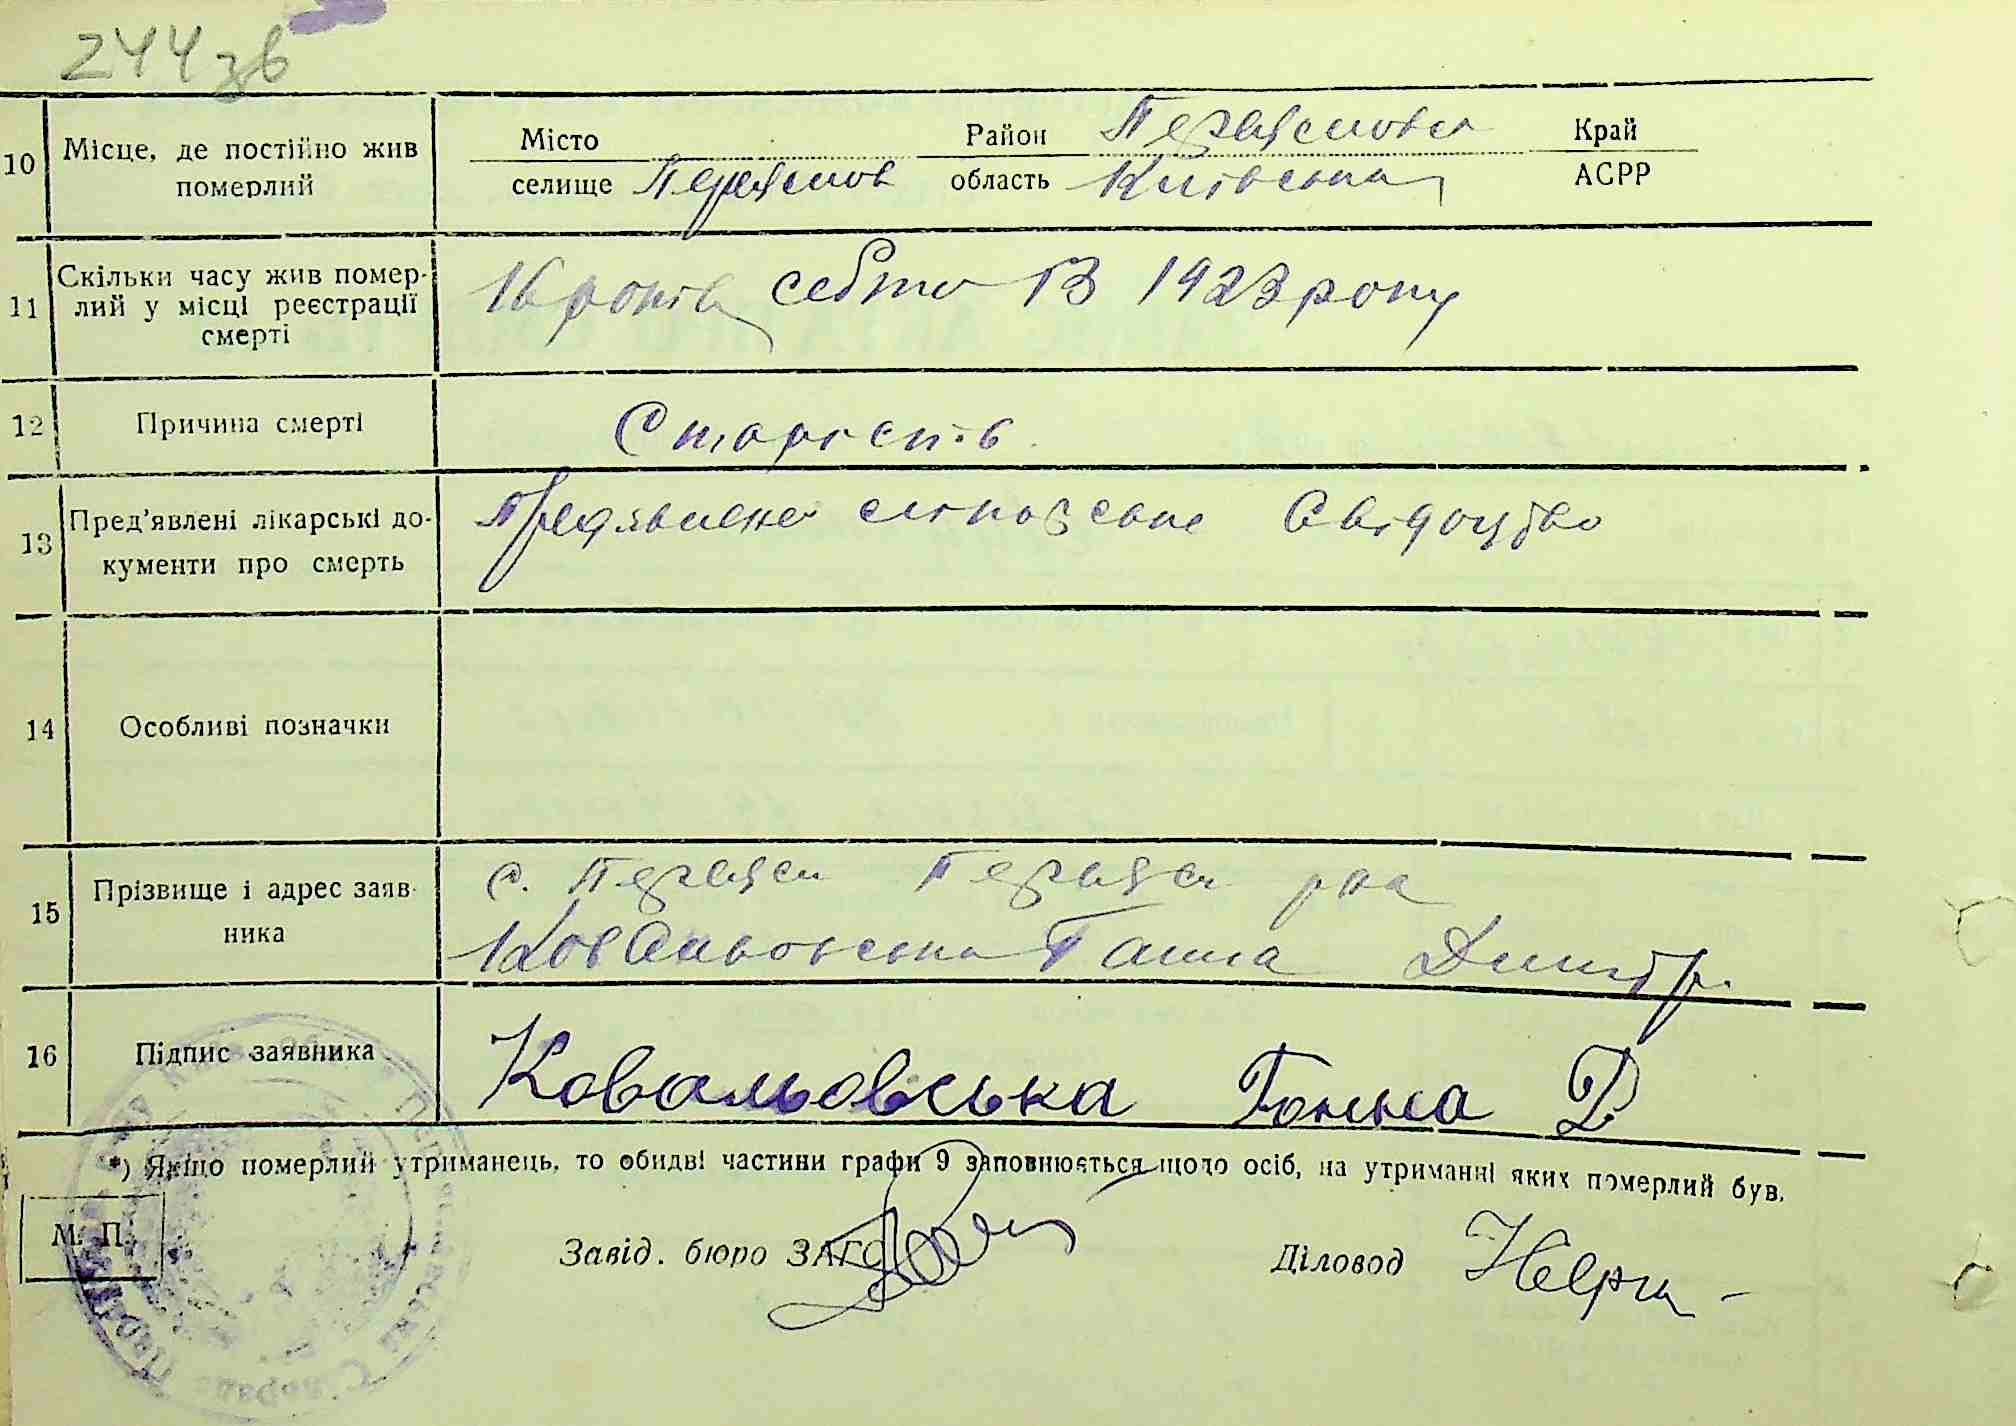 244 зв
10 Місце, де постійно жив померлий
Місто Район Переяслов Край
селище Переяслов область Київська АСРР
11 Скільки часу жив померлий у місці реєстрації смерті
16 років себто із 1923 року
12 Причина смерті
Старість
13 Пред'явлені лікарські документи про смерть
Предявлено Свідоцтво
14 Особливі позначки
15 Прізвище і адрес заявника
с. Переясл Переясл р-на
Ковальовська Ганна Дмитр.
16 Підпис заявника
Ковальовська Ганна Д
*) Якщо померлий утриманець, то обидві частини графи 9 заповнюється щодо осіб, на утриманні яких померлий був.
М. П.
Завід. бюро ЗАГС Діловод